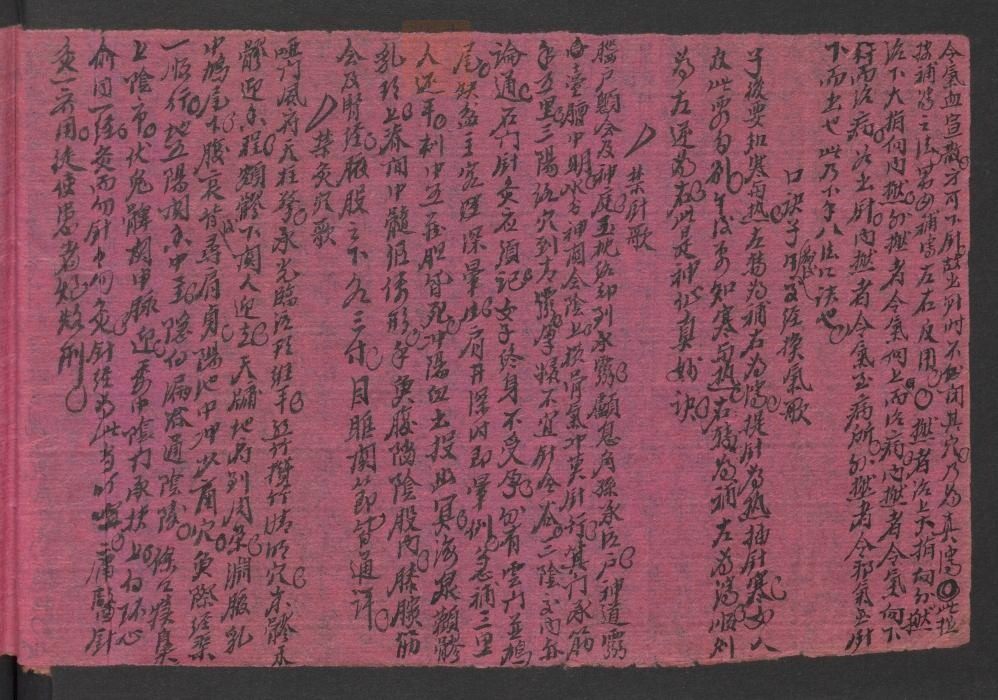 令氣血宣散方可下針故出針時不閉其穴乃為真瀉〇此楹
按補瀉之法男女補瀉左右反用〇撚者治上大指向外撚
治下大指向內撚外撚者令氣向上而治病內撚者令氣向下
行而治病治出針內撚者令氣至病所外撚者令邪氣至針
下而出也此乃下手八法口訣也
口訣子午及經換氣歌
子後要知寒與熱左轉為補右為瀉提針為熱插針寒女人
反此要分別午後要知寒與熱右轉為補左為瀉順則
為左逆為右此是神仙真妙訣
禁針歌
腦戶顖會及神庭玉枕絡却到承靈顱息角孫承泣戶神道靈
台膻中明水分神闕會陰上橫骨氣冲莫針行箕門承筋
手五里三陽絡穴到青靈孕婦不宜針合谷二陰交內亦
論通石門針灸應須記女子終身不受孕外有雲門並鳩
尾缺盆主客深暈生肩井深時即暈倒急補三里
人還平刺中五臟胆皆死冲陽血出投幽冥海泉顴髎
乳頭上脊間中髓傴僂形手魚腹陷陰股內膝臏筋
會及腎經腋股之下各三寸目眶關節皆通評
禁灸歌
啞門風府天柱擎承光臨泣頭維平絲竹攢竹睛明穴素髎禾
髎迎香程顴髎下關人迎去天牖天府到周榮淵腋乳
中鳩尾下腹哀背尋肩貞陽池中冲少商穴魚際經渠
一順行地五陽關脊中主隱白漏谷通陰陵條口犢鼻
上陰市伏兔髀關申脉迎委中陰門承扶上白環心
俞同一經灸而勿針針勿灸針經為此當叮嚀庸醫針
灸一齊用徒使患者炮烙刑